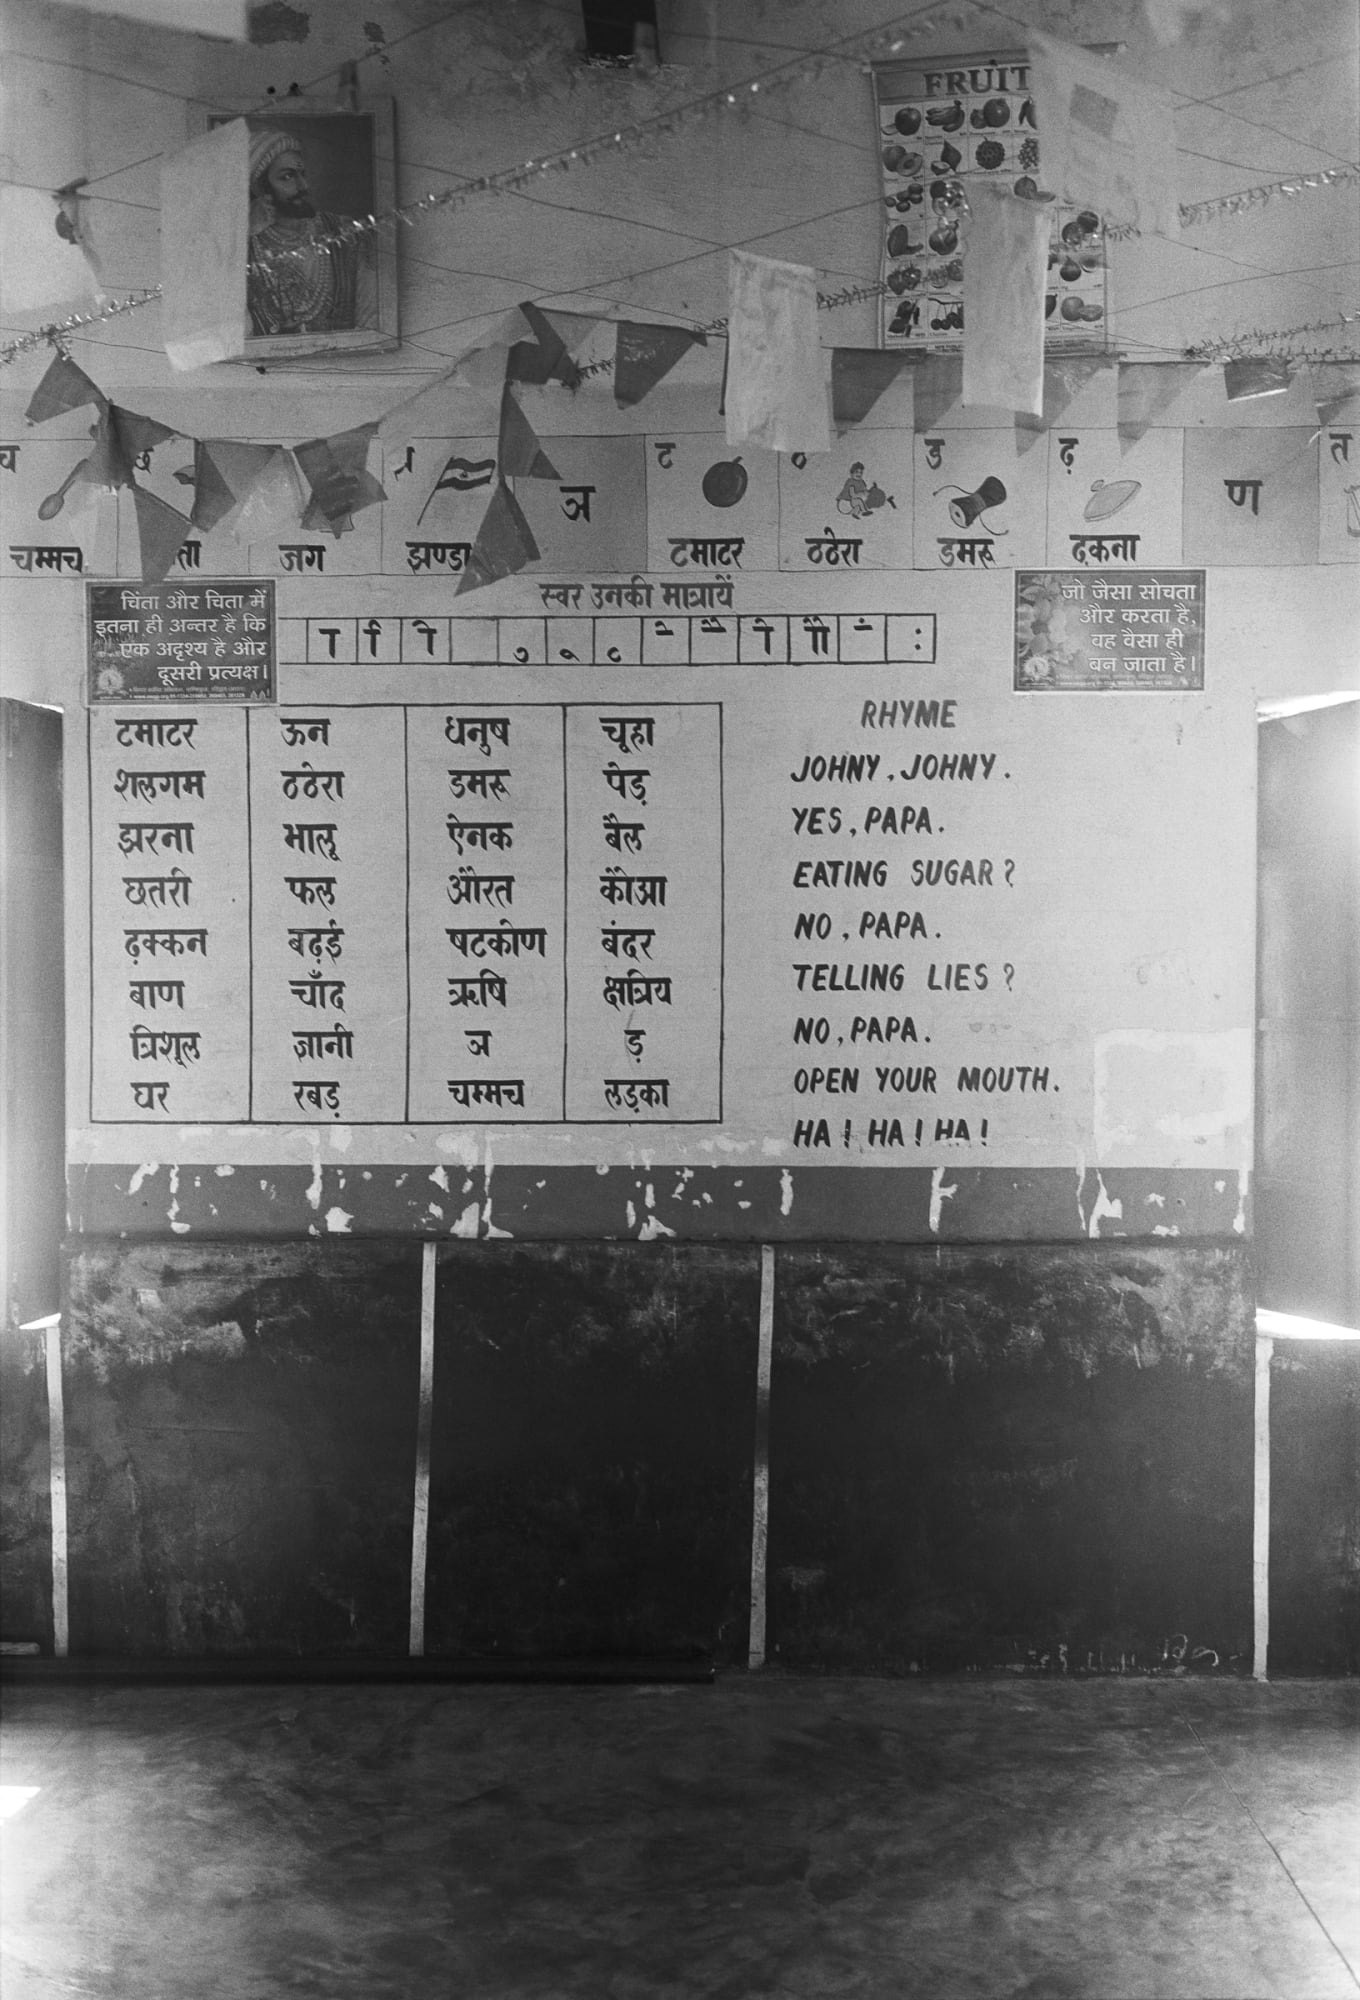 FRUIT
च
छ
ट
ड
ढ़
त
ञ
ण
चम्मच
ता
जग
झण्डा
टमाटर
ठठेरा
डमरू
ढ़कना
चिंता और चिता में
इतना ही अन्तर है कि
एक अदृश्य है और
दूसरी प्रत्यक्ष।
स्वर उनकी मात्रायें
जो जैसा सोचता
और करता है,
वह वैसा ही
बन जाता है।
टमाटर ऊन धनुष चूहा
शलगम ठठेरा डमरू पेड़
झरना भालू ऐनक बैल
छतरी फल औरत कौआ
ढ़क्कन बढ़ई षटकोण बंदर
बाण चाँद ऋषि क्षत्रिय
त्रिशूल ज्ञानी ञ ड़
घर रबड़ चम्मच लड़का
RHYME
JOHNY, JOHNY.
YES, PAPA.
EATING SUGAR?
NO, PAPA.
TELLING LIES?
NO, PAPA.
OPEN YOUR MOUTH.
HA! HA! HA!